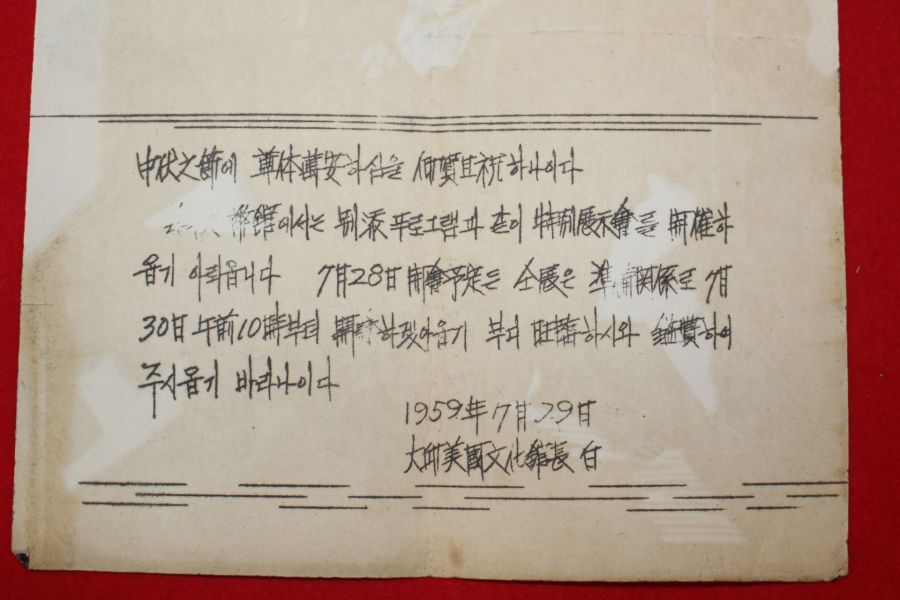 申伏之節에 尊体萬安하심을 仰賀且祝하나이다
館에서는 別添프로그램과 같이 特別展示會를 開催하
옵기 아뢰옵니다 7月28日 開會予定는 仝展은 準備関係로 7月
30日 午前10時부터 開 하겠아옵기 부디 旺臨하시와 鑑賞하여
주시옵기 바라나이다
1959年 7月 29日
大邱美國文化館長 白